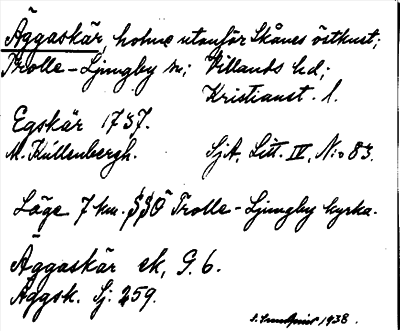 Äggaskär, holme utanför Skånes östkust;
Trolle-Ljungby sn; Villands hd;
Kristianst. l.
Egskär 1737.
M. Kullenbergh. SjA, Litt. IV, N:o 83.
Läge 7 km. SSO Trolle-Ljungby kyrka.
Äggaskär ek, G. 6.
Äggsk. Sj: 259.
S. Sundqvist 1938.